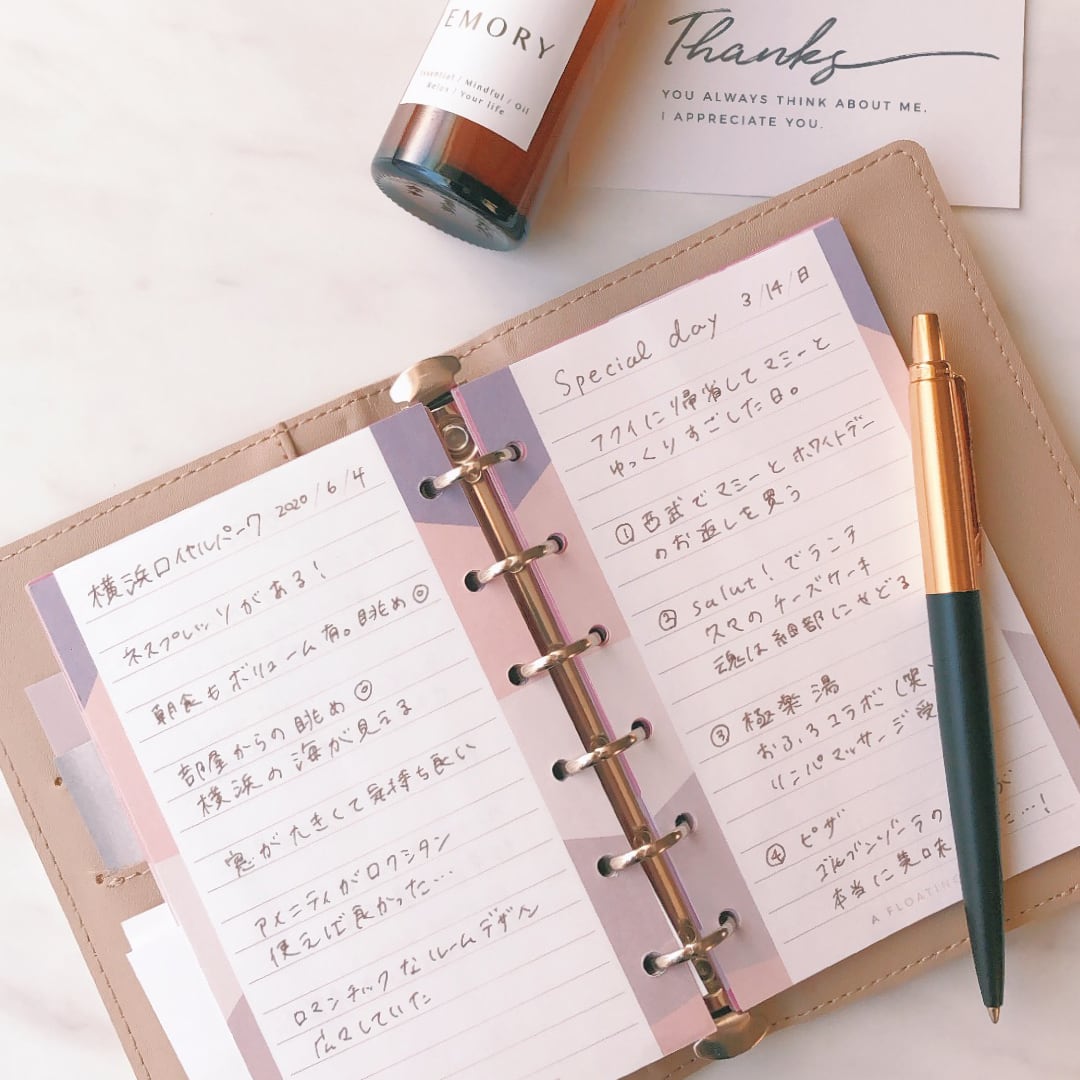 EMORY
Essential / Mindful / Oil
Relax / Your life
Thanks
YOU ALWAYS THINK ABOUT ME.
I APPRECIATE YOU.
横浜ロイヤルパーク 2020/6/4
ネスプレッソがある!
朝食もボリューム有。眺め◎
部屋からの眺め◎
横浜の海が見える
窓が大きくて気持ち良い
アメニティがロクシタン
使えば良かった…
ロマンチックなルームデザイン
広々していた
3/14/日
Special day
フクイに帰省してマミーと
ゆっくりすごした日。
① 西武でマミーとホワイトデー
のお返しを買う
② salut!でランチ
スマのチーズケーキ
魂は細部にやどる
③ 極楽湯
おふろコラボ(笑)
リンパマッサージ受
④ ピザ
ゴルゴンゾーラの が
本当に美味 …!
A FLOATING